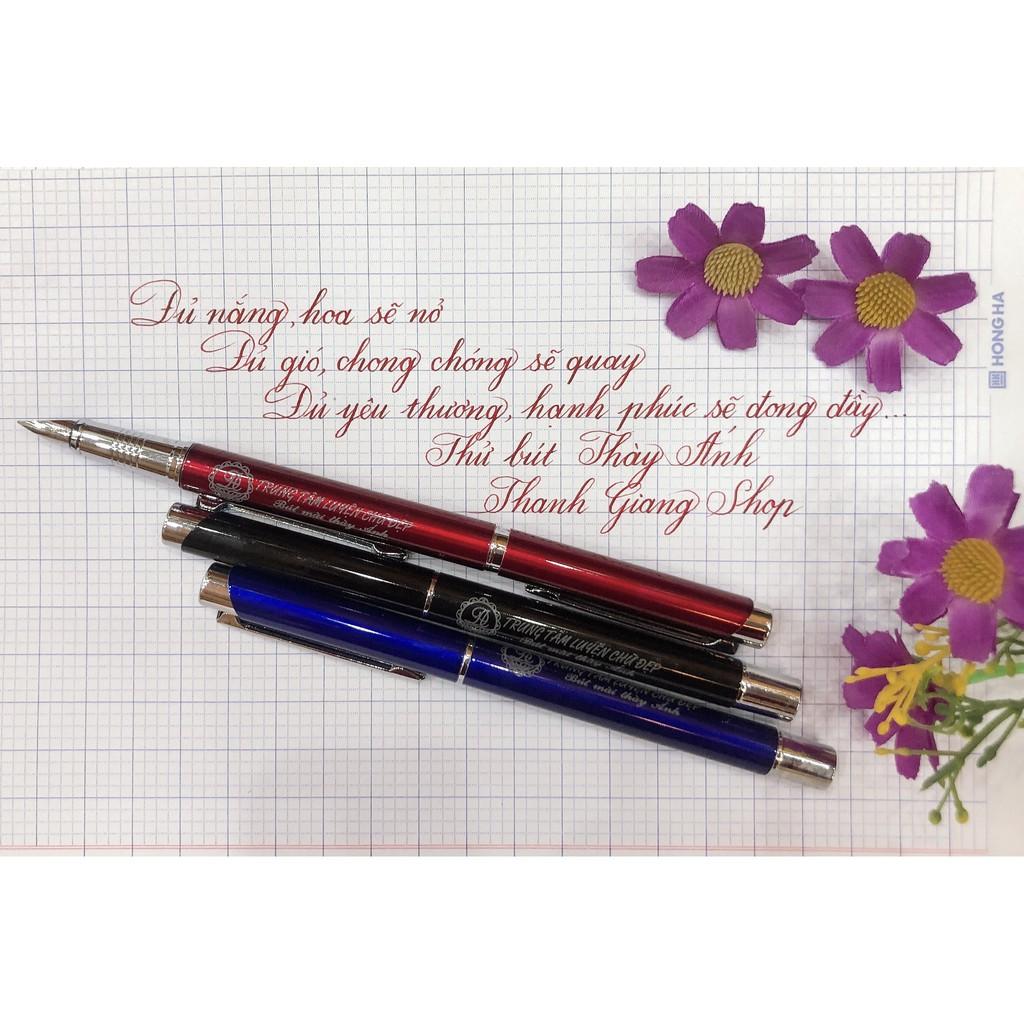 Đủ nắng, hoa sẽ nở
Đủ gió, chong chóng sẽ quay
Đủ yêu thương, hạnh phúc sẽ đong đầy...
Thử bút Thầy Ánh
Thanh Giang Shop
HONG HA
TRUNG TÂM LUYỆN CHỮ ĐẸP
Bút mài thầy Ánh
TRUNG TÂM LUYỆN CHỮ ĐẸP
Bút mài thầy Ánh
TRUNG TÂM LUYỆN CHỮ ĐẸP
Bút mài thầy Ánh